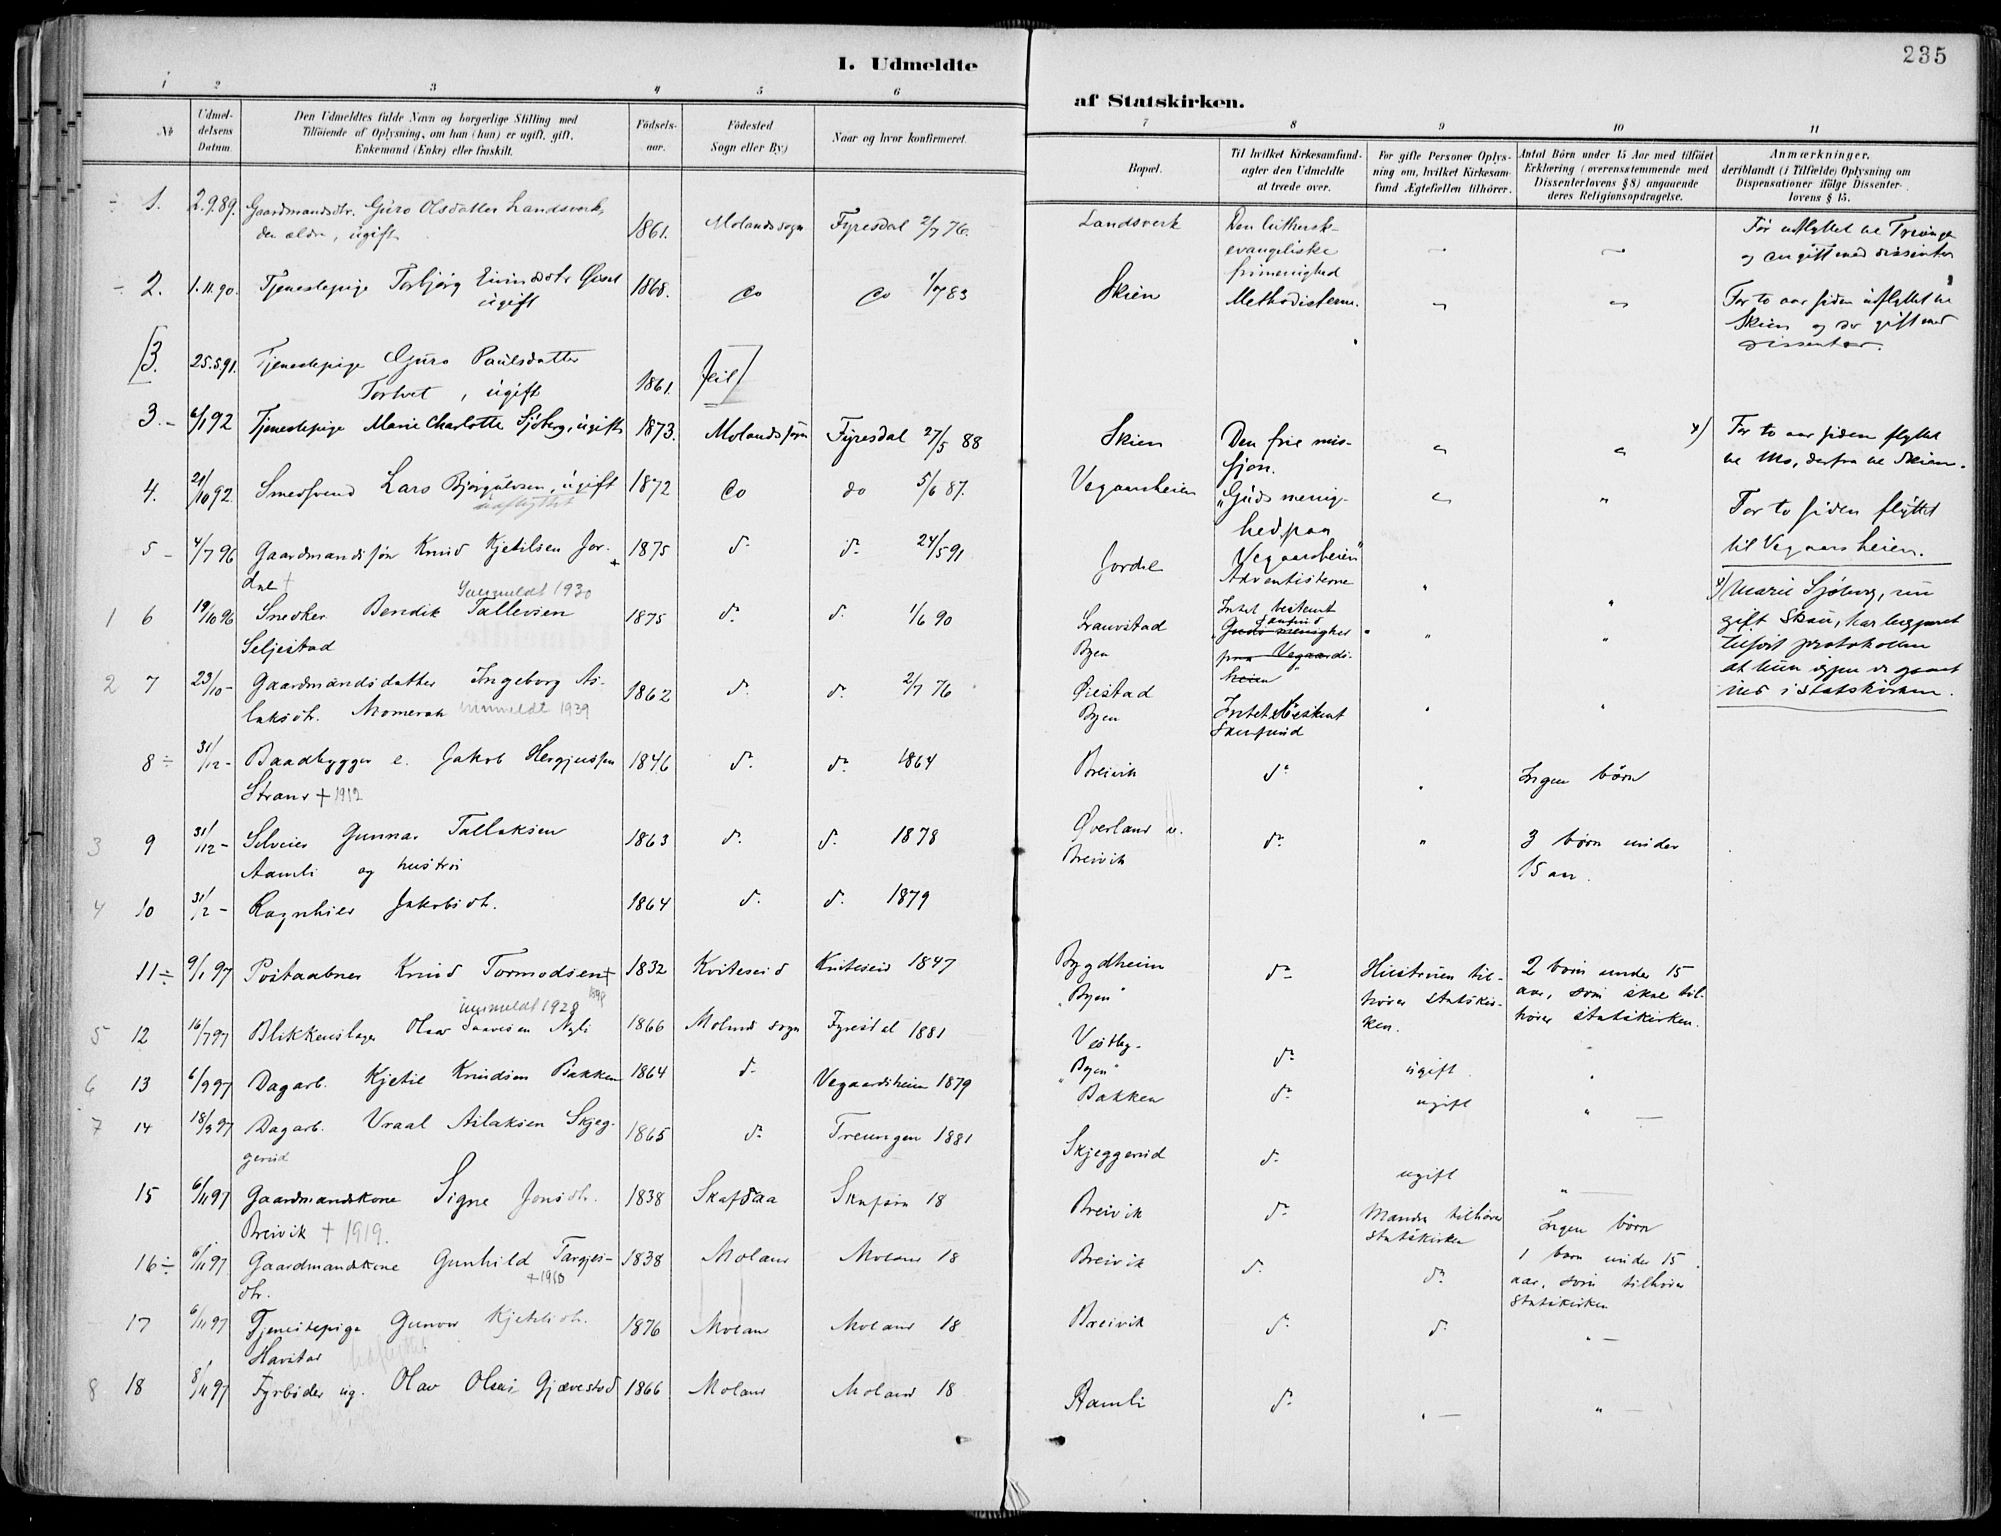 235
I. Udmeldte
af Statskirken.
1 2 3 4 5 6
7 8 9 10 11
No
Udmeldelsens Datum.
Den Udmeldtes fulde Navn og borgerlige Stilling med
Tilføiende af Oplysning, om han (hun) er ugift, gift,
Enkemand (Enke) eller fraskilt.
Fødselsaar.
Fødested
Sogn eller By.)
Naar og hvor konfirmeret.
Bopæl.
Til hvilket Kirkesamfund-
agter den Udmeldte
at træde over.
For gifte Personer Oplys-
ning om, hvilket Kirkesam-
fund Ægtefællen tilhører.
Antal Børn under 15 Aar med tilføiet
Erklæring (overensstemmende med
Dissenterlovens § 8) angaaende
deres Religionsopdragelse.
Anmærkninger,
deriblandt (i Tilfælde) Oplysning om
Dispensationer ifølge Dissenter-
lovens § 15.
÷ 1. 2.9.89. Gaardmandsdtr. Guro Olsdatter Landsverk, 1861. Molands sogn Fyresdal 2/7 76. Landsverk Den luthersk-
den ældre, ugift evangeliske
frimenighed
Før udflyttet til Treungen
og der gift med dissenter
÷ 2. 1.11.90. Tjenestepige Torbjørg Eivindsdtr 1868. do do 1/7 83 Skien Methodisterne.
ugift
For to aar siden udflyttet til
Skien og der gift med
dissenter.
[3. 25.5.91. Tjenestepige Guro Paulsdatter 1861. feil]
Tortvet, ugift
3. - 6/1 92 Tjenestepige Marie Charlotte Sjøberg, ugift 1873. Molands sogn Fyresdal 27/5 88 Skien Den frie mis-
sjon.
x) For to aar siden flyttet
til Mo, derfra til Skien.
4. 21/10 92. Smedsvend Lars Bjørgulvsen, ugift 1872 do do 5/6 87. Vegaarsheien "Guds menig-
udflyttet hed paa
Vegaarsheien"
For to siden flyttet
til Vegaarsheien.
5 - 4/7 96 Gaardmandssøn Knud Kjetilsen Jor- 1875 do do 24/5 91 Jordal Adventisterne
dal +
Indmeldt 1930
1 6 19/10 96 Snedker Bendik Tallevsen 1875 do do 1/6 90 Byen Intet bestemt
Seljestad Samfund
Guds menighed
paa Vegaards-
heien
x) Marie Sjøberg, nu
gift Skau, har begjæret
tilført protokollen
at hun igjen er gaaet
ind i statskirken.
2 7 23/10 - Gaardmandsdatter Ingeborg As- 1862 do do 2/7 76 Øiestad Intet bestemt
laksdtr. Momerak indmeldt 1939 Byen Samfund
8 ÷ 31/12 - Baadbygger e. Jakob Hergjussen 1846 do do 1864 Breivik do Ingen børn
Strand + 1912
3 9 31/12 - Selveier Gunnar Tallaksen 1863 do do 1878 Øverland v. do " 3 børn under
Aamli og hustru Breivik 15 aar.
4 10 31/12 - Ragnhild Jakobsdtr. 1864 do do 1879
11 ÷ 9/1 97 Postaabner Knud Tormodsen + 1832 Kviteseid Kviteseid 1847 Bygdheim do Hustruen til- 2 børn under 15
1898 "Byen" hører statskir- aar, som skal til-
ken. hører statskirken.
indmeldt 1928
5 12 16/7 97 Blikkenslager Olav Nyli 1866 Moland sogn Fyresdal 1881 Vestby. do ugift
"Byen"
6 13 6/9 97 Dagarb. Kjetil Knudsen Bakken 1864 do Vegaardsheien 1879 Bakken do ugift
7 14 18/9 97 Dagarb. Vraal Aslaksen Skjeg- 1865 do Treungen 1881 Skjeggerud do ugift
gerud
15 6/11 97 Gaardmandskone Signe Jonsdtr. 1838 Skafsaa Skafsaa 18 Breivik do Manden tilhører Ingen børn
Breivik + 1919. statskirken
16 ÷ 6/11 97 Gaardmandskone Gunhild Targjes- 1838 Moland Moland 18 Breivik do do 1 barn under 15
dtr. + 1910 aar, som tilhører
statskirken
17 6/11 97 Tjenestepige Gunvor Kjetilsdtr. 1876 Moland Moland 18 Breivik do do " -
udflyttet
8 18 8/11 97 Fyrbøder ug. Olav Olsen Gjævestad 1866 Moland Moland 18 Aamli do " - " -